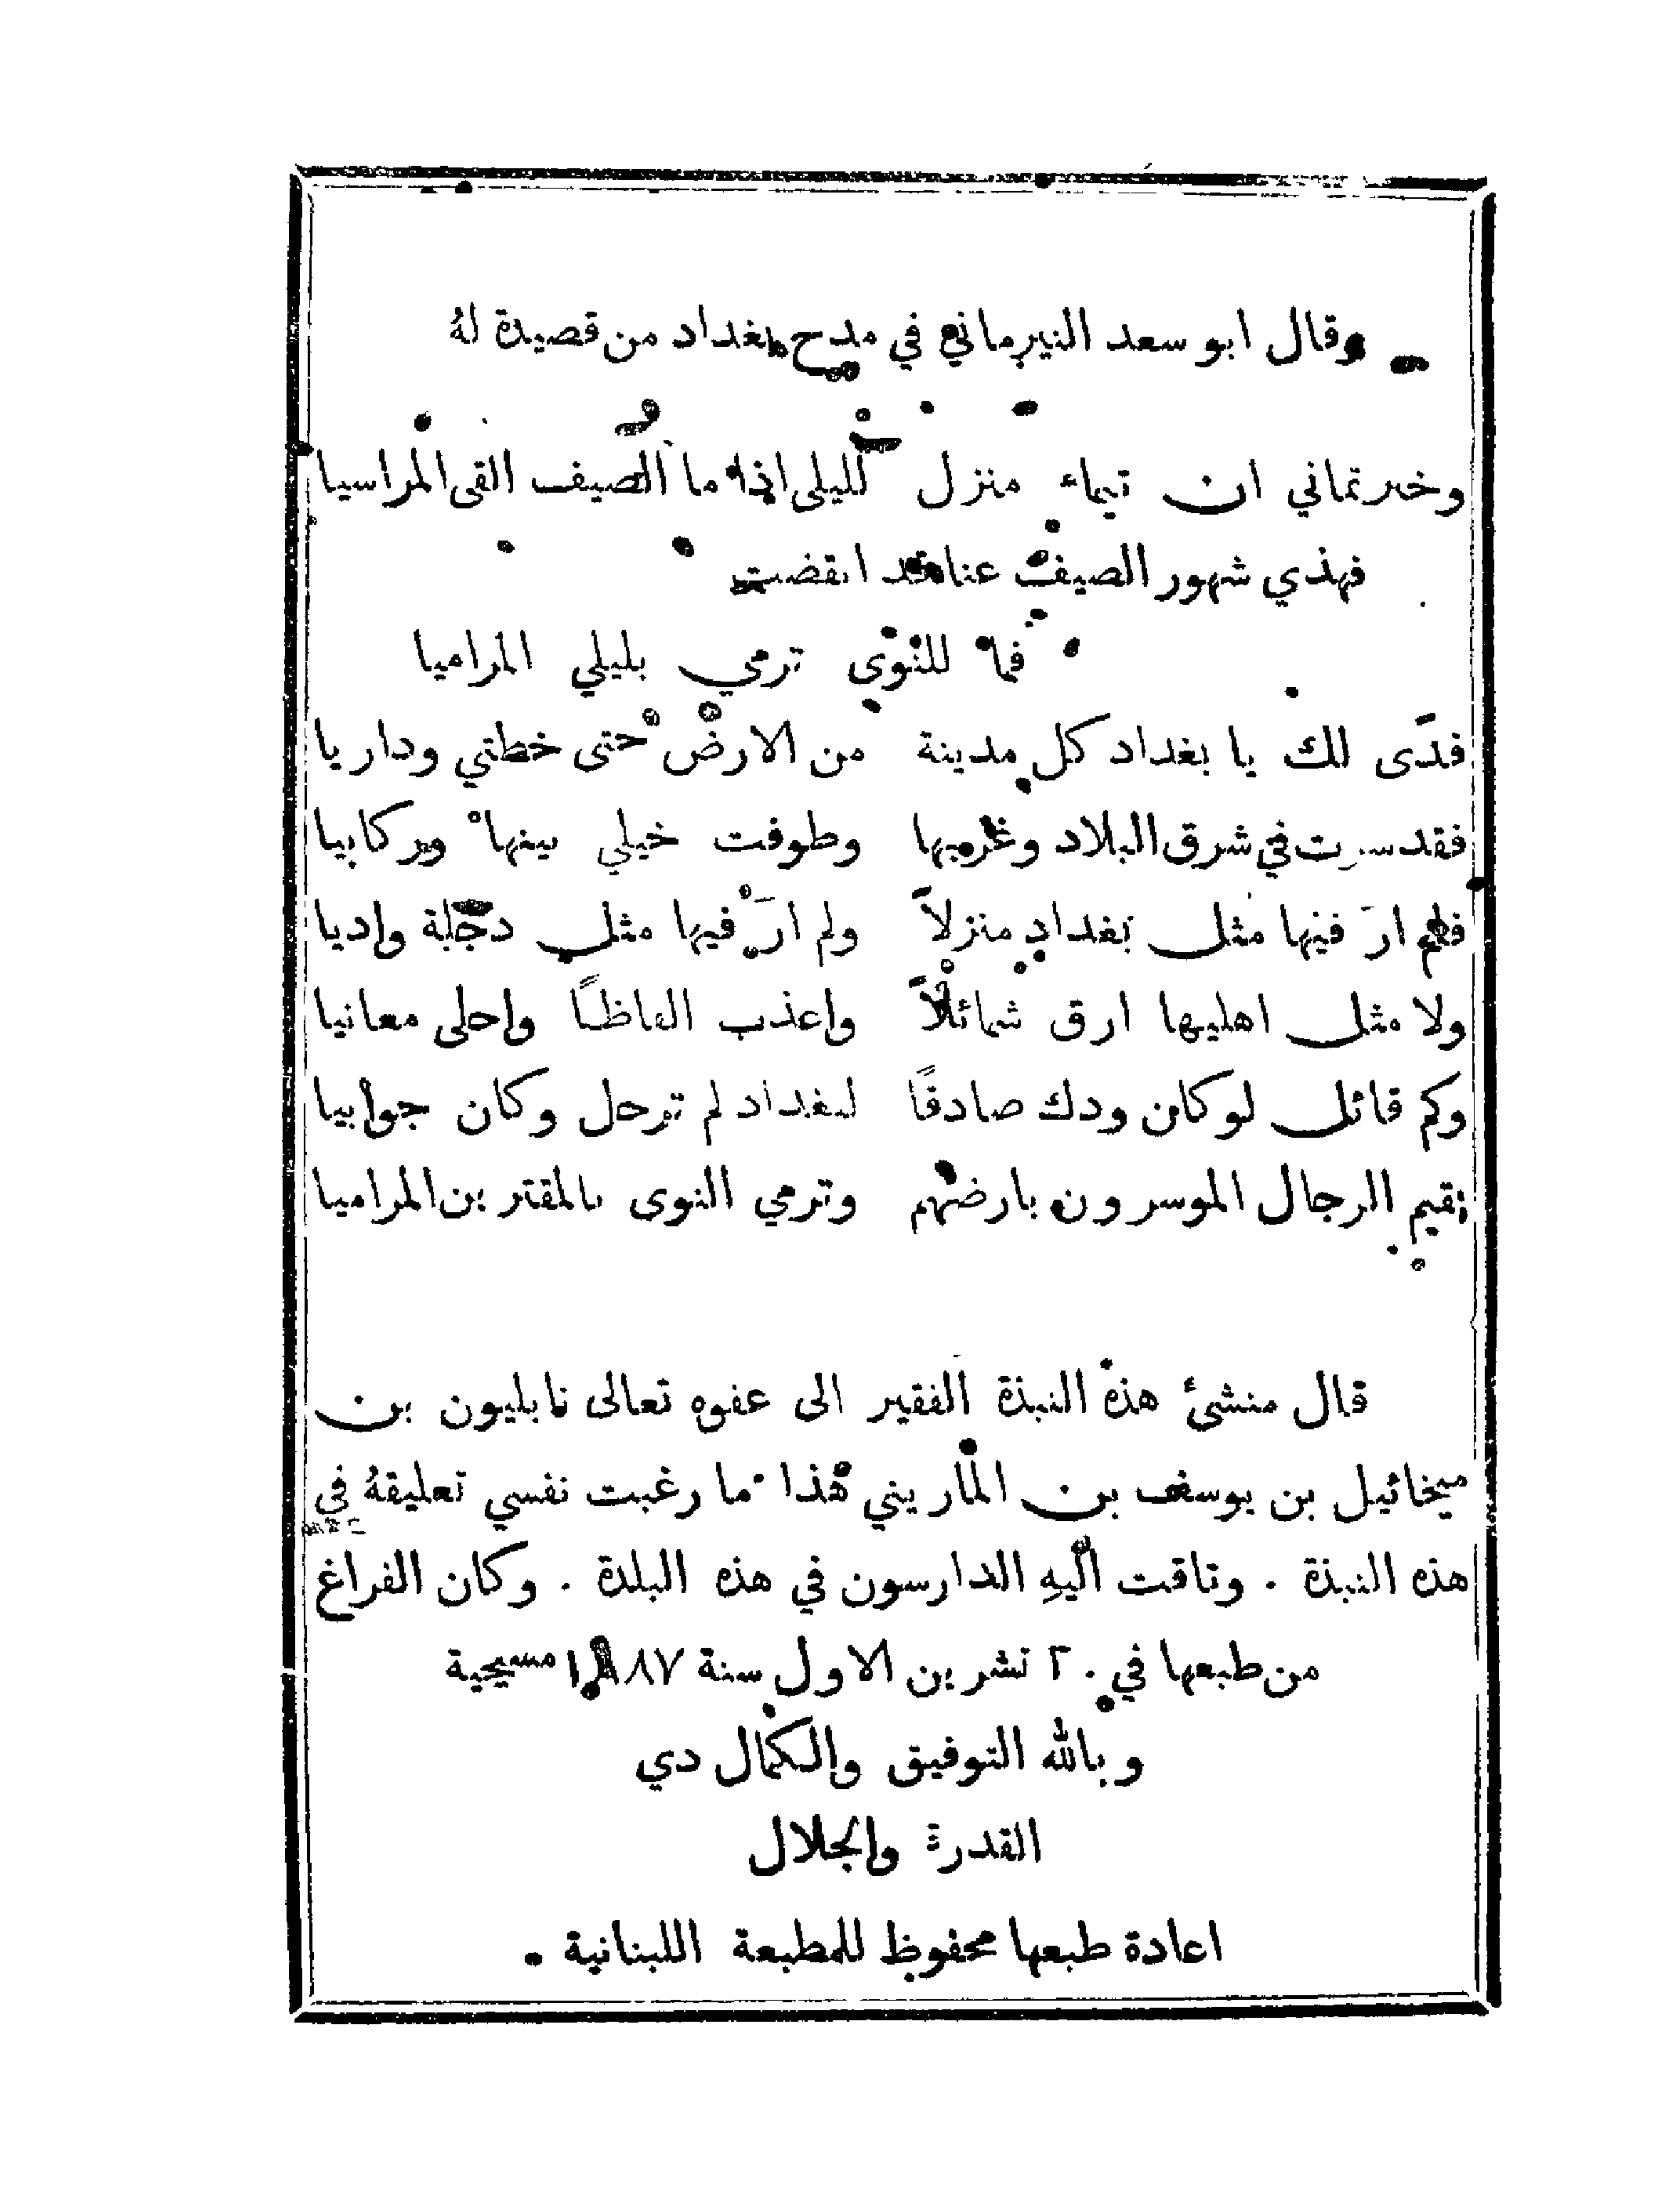 وقال ابو سعد النيرماني في مدح بغداد من قصيدة لهُ
وخبرتماني ان تيماء منزل لليلى اذا ما الصيف القى المراسيا
فهذي شهور الصيف عنا قد انقضت
فما للنوى ترمي بليلي المراميا
فدًى لك يا بغداد كل مدينة من الارض حتى خطتي ودار يا
فقد سرت في شرق البلاد وغربها وطوفت خيلي بينها وركابيا
فلم ارَ فيها مثل بغداد منزلاً ولم ارَ فيها مثل دجلة واديا
ولا مثل اهليها ارق شمائلاً واعذب الفاظًا واحلى معانيا
وكم قائل لو كان ودك صادقًا لبغداد لم ترحل وكان جوابيا
يقيم الرجال الموسرون بارضهم وترمي النوى بالمقترين المراميا
قال منشئ هذه النبذة الفقير الى عفوه تعالى نابليون بن
ميخائيل بن يوسف بن الماريني هذا ما رغبت نفسي تعليقهُ في
هذه النبذة . وتاقت اليهِ الدارسون في هذه البلدة . وكان الفراغ
من طبعها في ٢٠ تشرين الاول سنة ١٨٨٧ مسيحية
وبالله التوفيق والكمال دي
القدرة والجلال
اعادة طبعها محفوظ للمطبعة اللبنانية .